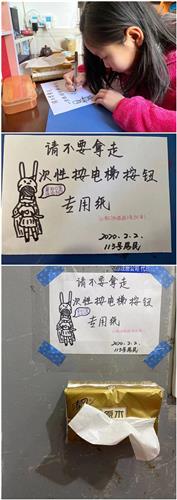 请不要拿走
次性按电梯按钮
专用纸
2020.2.2.
113号居民
请不要拿走
次性按电梯按钮
专用纸
2020.2.2.
113号居民
清风
原木